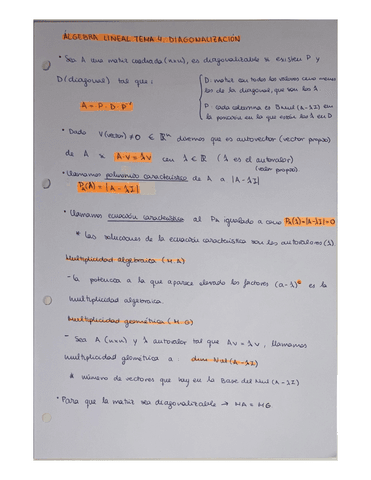 ÁLGEBRA LINEAL TEMA 4: DIAGONALIZACIÓN
· Sea A una matriz cuadrada (n×n), es diagonalizable si existen P y
D (diagonal) tal que:
D: matriz con todos los valores cero menos
los de la diagonal, que son los λ
A = P · D · P⁻¹
P: cada columna es Bnul (A-λI) en
la posición en la que están los λ en D
· Dado V (vector) ≠ 0 ∈ ℝⁿ, diremos que es autovector (vector propio)
de A si A·V = λV con λ ∈ ℝ (λ es el autovalor)
(valor propio)
· Llamamos polinomio característico de A a |A-λI|
P_A(λ) = |A-λI|
· Llamamos ecuación característica al P_A igualado a cero P_A(λ)=|A-λI|=0
* Las soluciones de la ecuación característica son los autovalores (λ).
Multiplicidad algebraica (M.A)
- la potencia a la que aparece elevado los factores (a-λ) es la
multiplicidad algebraica.
Multiplicidad geométrica (M.G)
- Sea A (n×n) y λ autovalor tal que Av = λv, llamamos
multiplicidad geométrica a: dim Nul (A-λI)
* número de vectores que hay en la Base del Nul (A-λI)
· Para que la matriz sea diagonalizable → MA = MG.